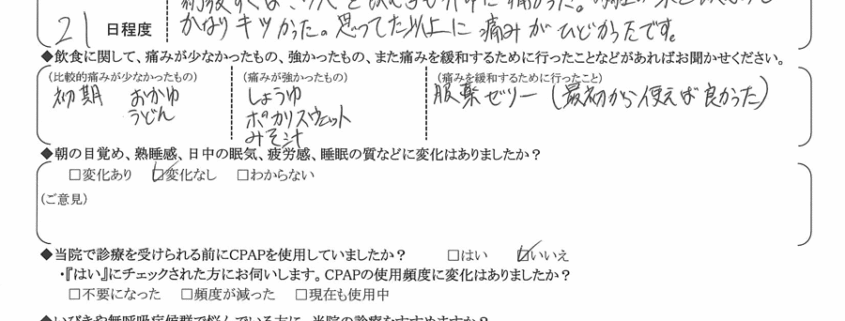 かなりキツかった。思ってた以上に痛みがひどかったです。
21 日程度
◆飲食に関して、痛みが少なかったもの、強かったもの、また痛みを緩和するために行ったことなどがあればお聞かせください。
(比較的痛みが少なかったもの) (痛みが強かったもの) (痛みを緩和するために行ったこと)
初期 おかゆ しょうゆ 服薬ゼリー(最初から使えば良かった)
うどん ポカリスウェット
みそ汁
◆朝の目覚め、熟睡感、日中の眠気、疲労感、睡眠の質などに変化はありましたか?
□変化あり ☑変化なし □わからない
(ご意見)
◆当院で診療を受けられる前にCPAPを使用していましたか? □はい ☑いいえ
・『はい』にチェックされた方にお伺いします。CPAPの使用頻度に変化はありましたか?
□不要になった □頻度が減った □現在も使用中
◆いびきや無呼吸症候群で悩んでいる方に、当院の診療をすすめますか?